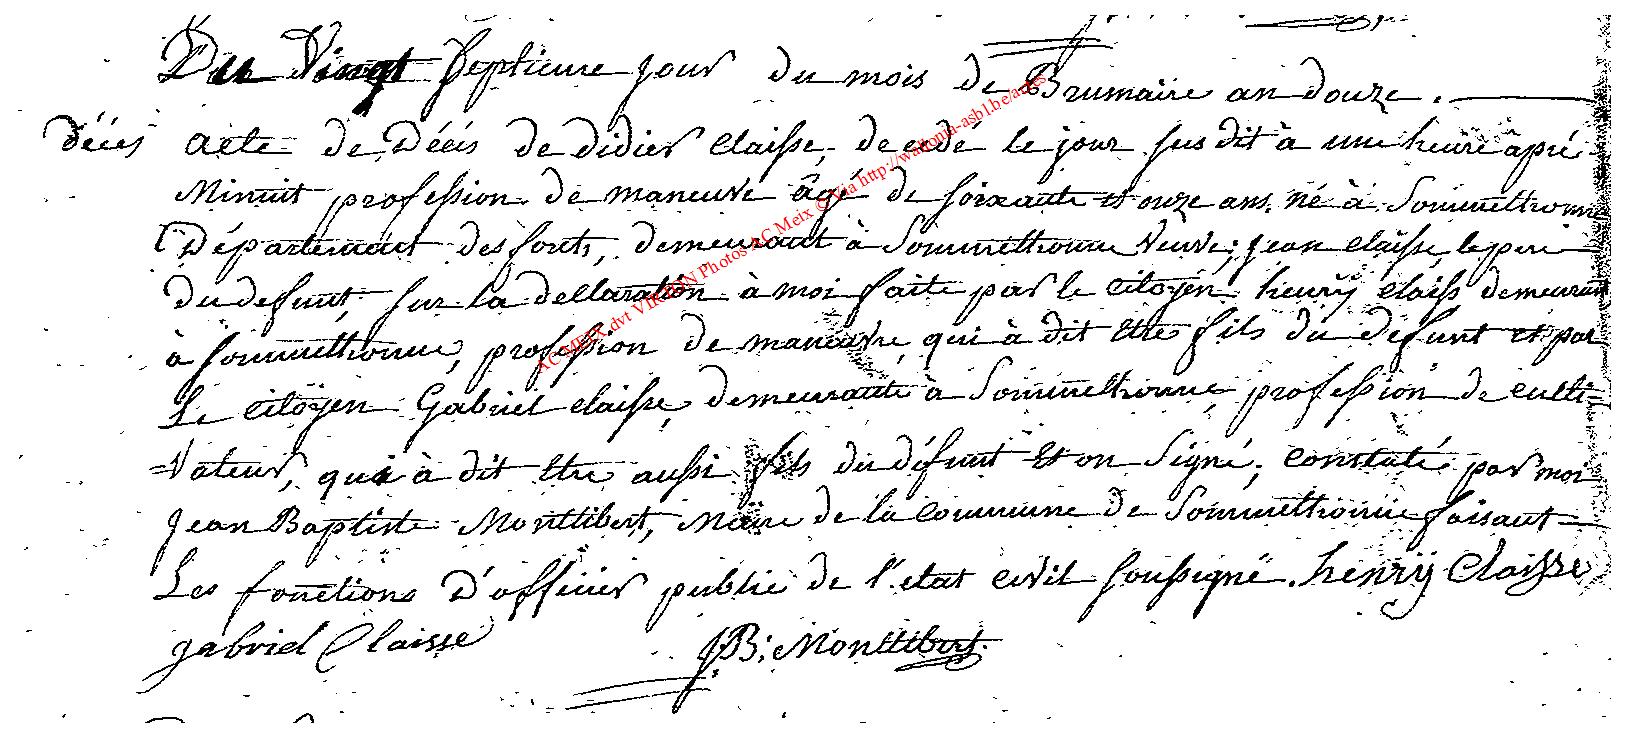 Du Vingt septieme jour du mois de Brumaire an douze.
décés acte de Décés de didier claisse, decedé le jour sus dit à une heure âpré
Minuit profession de maneuvre âgé de soixante et onze ans, né à Sommethonne
Département des forets, demeurant à Sommethonne veuve; jean claisse le peri
du defunt, sur la declaration à moi faite par le citoyen henry claiss demeurant
à sommethonne, profession de maneuvre, qui à dit etre fils du defunt et par
Le citoÿen Gabriel claisse, demeurante à Sommethonne, profession de culti=
=vateur, qui à dit etre aussi fils du défunt et on Signé, constaté par moi
jean Baptiste Montlibert, maire de la commune de Sommethonne faisant
Les fonctions D'officier public de l'etat civil soussigné. henrÿ Claisse
gabriel Claisse JB: Montlibert.
AC MEIX dvt VIRTON Photos AC Meix © Via http://wallonia-asbl.be/actes